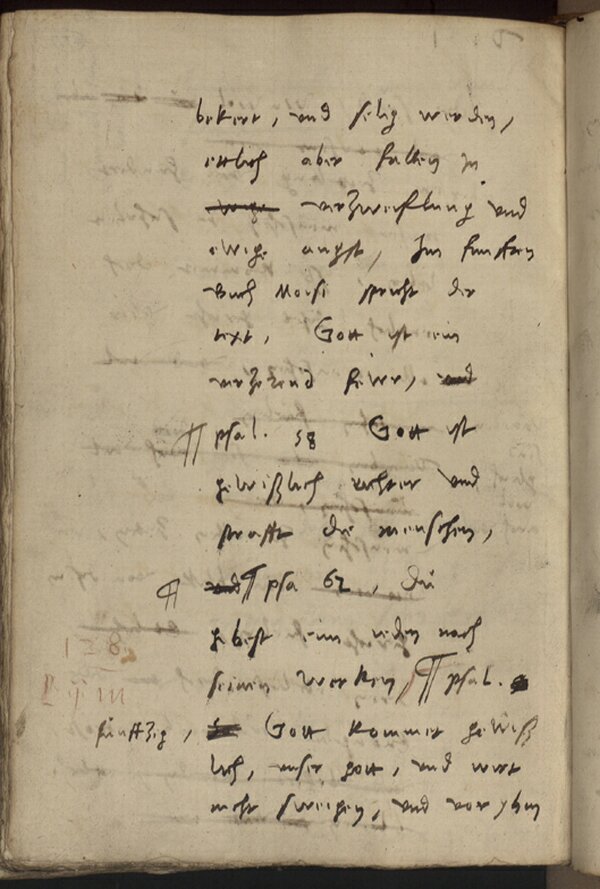 bekert, und selig werden,
ettlich aber fallen in
verzweiflung und
ewige angst, Im funften
Buch Moisi spricht der
text, Gott ist ein
verzerend fewr, und
¶ psal. 58 Gott ist
gewißlich richter und
strafft die menschen,
¶ und ¶ psa 62, Du
gebest eim ieden nach
128
seinen werken, ¶ psal.
funffzig, Gott kommet gewiß
lich, unser gott, und wirt
nicht sweigen, und vor yhm